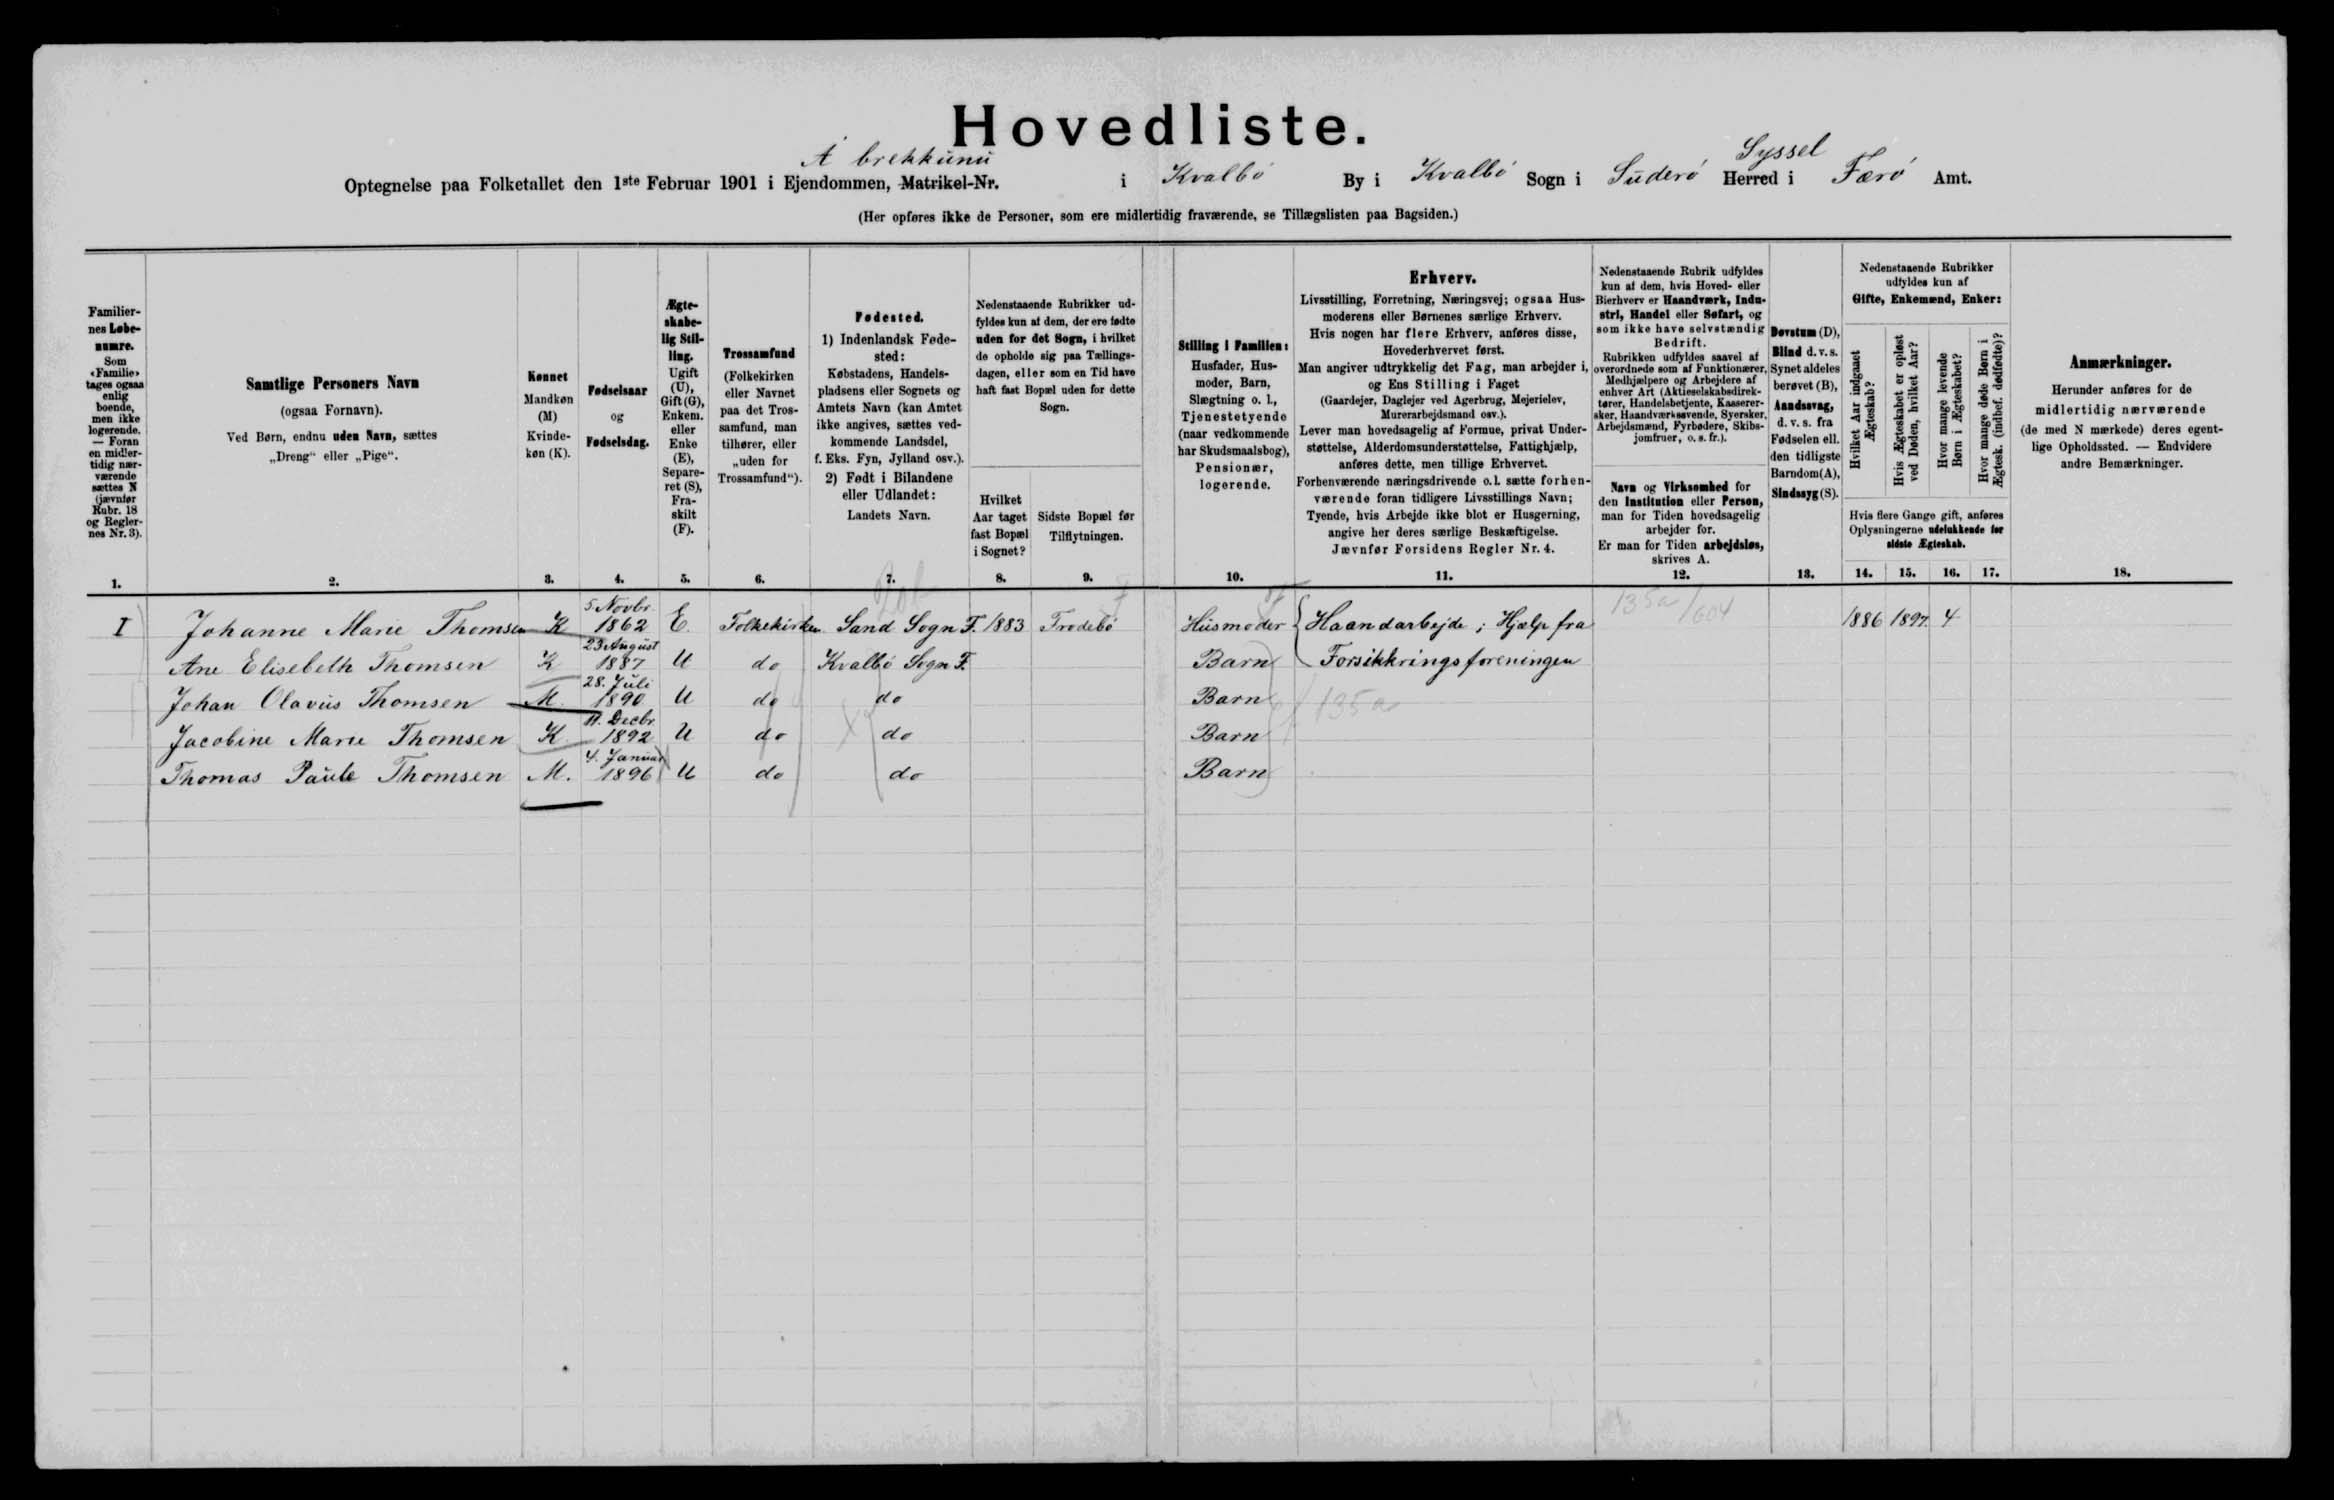 Hovedliste.
Á brekkunu
Syssel
Optegnelse paa Folketallet den 1ste Februar 1901 i Ejendommen, Matrikel-Nr. i Kvalbø By i Kvalbø Sogn i Suderø Herred i Færø Amt.
(Her opføres ikke de Personer, som ere midlertidig fraværende, se Tillægslisten paa Bagsiden.)
Familier-
nes Løbe-
numre.
Som
«Familie»
tages ogsaa
enlig
boende,
men ikke
logerende.
— Foran
en midler-
tidig nær-
værende
sættes N
(jævnfør
Rubr. 18
og Regler-
nes Nr. 3).
1.
Samtlige Personers Navn
(ogsaa Fornavn).
Ved Børn, endnu uden Navn, sættes
„Dreng“ eller „Pige“.
2.
Kønnet
Mandkøn
(M)
Kvinde-
køn (K).
3.
Fødselsaar
og
Fødselsdag.
4.
Ægte-
skabe-
lig Stil-
ling.
Ugift
(U),
Gift (G),
Enkem.
eller
Enke
(E),
Separe-
ret (S),
Fra-
skilt
(F).
5.
Trossamfund
(Folkekirken
eller Navnet
paa det Tros-
samfund, man
tilhører, eller
„uden for
Trossamfund“).
6.
Fødested.
1) Indenlandsk Føde-
sted:
Købstadens, Handels-
pladsens eller Sognets og
Amtets Navn (kan Amtet
ikke angives, sættes ved-
kommende Landsdel,
f. Eks. Fyn, Jylland osv.).
2) Født i Bilandene
eller Udlandet:
Landets Navn.
7.
Nedenstaaende Rubrikker ud-
fyldes kun af dem, der ere fødte
uden for det Sogn, i hvilket
de opholde sig paa Tællings-
dagen, eller som en Tid have
haft fast Bopæl uden for dette
Sogn.
Hvilket
Aar taget
fast Bopæl
i Sognet?
8.
Sidste Bopæl før
Tilflytningen.
9.
Stilling i Familien:
Husfader, Hus-
moder, Barn,
Slægtning o. l.,
Tjenestetyende
(naar vedkommende
har Skudsmaalsbog),
Pensionær,
logerende.
10.
Erhverv.
Livsstilling, Forretning, Næringsvej; ogsaa Hus-
moderens eller Børnenes særlige Erhverv.
Hvis nogen har flere Erhverv, anføres disse,
Hovederhvervet først.
Man angiver udtrykkelig det Fag, man arbejder i,
og Ens Stilling i Faget
(Gaardejer, Daglejer ved Agerbrug, Mejerielev,
Murerarbejdsmand osv.).
Lever man hovedsagelig af Formue, privat Under-
støttelse, Alderdomsunderstøttelse, Fattighjælp,
anføres dette, men tillige Erhvervet.
Forhenværende næringsdrivende o. l. sætte forhen-
værende foran tidligere Livsstillings Navn;
Tyende, hvis Arbejde ikke blot er Husgerning,
angive her deres særlige Beskæftigelse.
Jævnfør Forsidens Regler Nr. 4.
11.
Nedenstaaende Rubrik udfyldes
kun af dem, hvis Hoved- eller
Bierhverv er Haandværk, Indu-
stri, Handel eller Søfart, og
som ikke have selvstændig
Bedrift.
Rubrikken udfyldes saavel af
overordnede som af Funktionærer,
Medhjælpere og Arbejdere af
enhver Art (Aktieselskabsdirek-
tører, Handelsbetjente, Kasserer-
sker, Haandværkssvende, Syersker,
Arbejdsmænd, Fyrbødere, Skibs-
jomfruer, o. s. fr.).
Navn og Virksomhed for
den Institution eller Person,
man for Tiden hovedsagelig
arbejder for.
Er man for Tiden arbejdsløs,
skrives A.
12.
Døvstum (D),
Blind d. v. s.
Synet aldeles
berøvet (B),
Aandssvag,
d. v. s. fra
Fødselen ell.
den tidligste
Barndom (A),
Sindssyg (S).
13.
Nedenstaaende Rubrikker
udfyldes kun af
Gifte, Enkemænd, Enker:
Hvilket Aar indgaaet
Ægteskab?
Hvis Ægteskabet er opløst
ved Døden, hvilket Aar?
Hvor mange levende
Børn i Ægteskabet?
Hvor mange døde Børn i
Ægtesk. (indbef. dødfødte)?
Hvis flere Gange gift, anføres
Oplysningerne udelukkende for
sidste Ægteskab.
14. 15. 16. 17.
Anmærkninger.
Herunder anføres for de
midlertidig nærværende
(de med N mærkede) deres egent-
lige Opholdssted. — Endvidere
andre Bemærkninger.
18.
I Johanne Marie Thomsen K 5 Novbr. 1862 E. Folkekirken Sand Sogn F. 1883 Frodebø Husmoder Haandarbejde; Hjælp fra 135a/604 1886 1897. 4
Ane Elisebeth Thomsen K 23 August 1887 U do Kvalbø Sogn F. Barn Forsikkringsforeningen
Johan Olavus Thomsen M. 28. Juli 1890 U do do Barn 135a
Jacobine Marie Thomsen K 11. Decbr. 1892 U do do Barn
Thomas Paule Thomsen M. 4. Januar 1896 U do do Barn